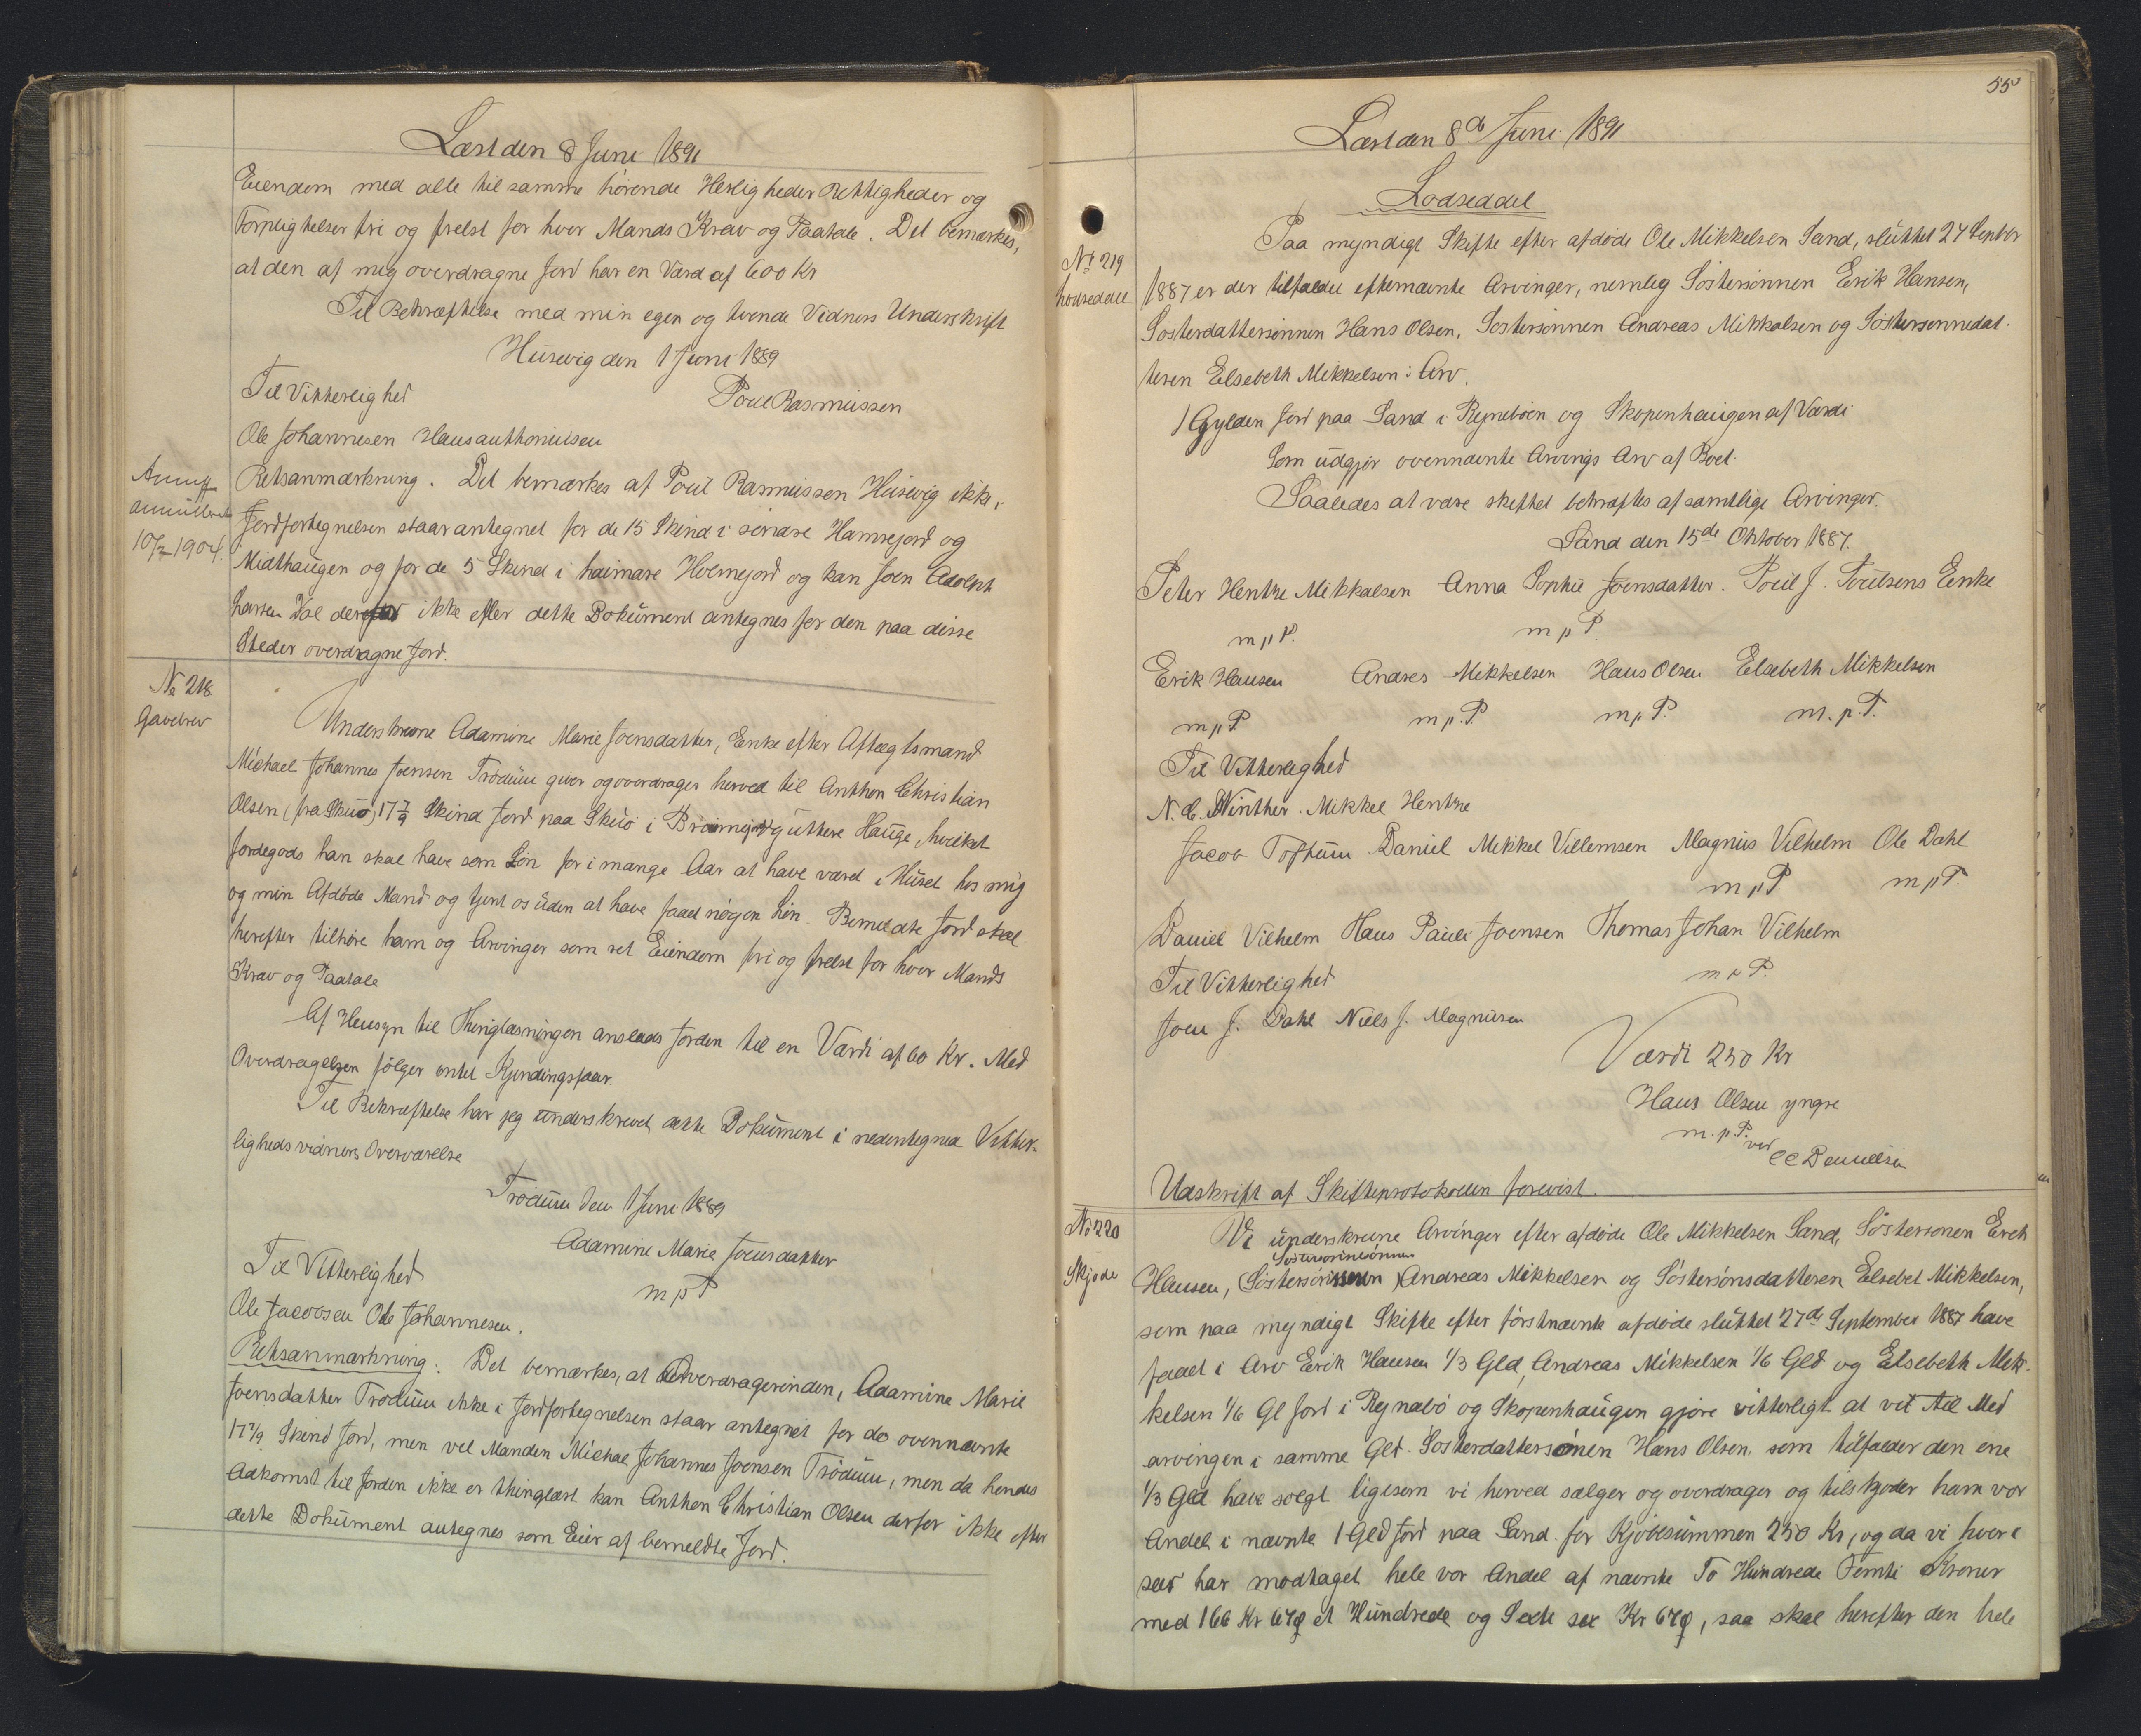 Læst den 8 Juni 1891
Eiendom med alle til samme hörende Herligheder Rettigheder og
Forpligtelser fri og frelst for hver Mands Krav og Paatale. Det bemærkes,
at den af mig overdragne Jord har en Værd af 600 Kr
Til Bekræftelse med min egen og tvende Vidners Underskrift
Husevig den 1 Juni 1889
Til Vitterlighed
Poul Rasmussen
Ole Johannesen Hansauthoniusen
annulleret
10/2 1904.
Retsanmærkning. Det bemærkes at Poul Rasmussen Husevig ikke i
Jordfortegnelsen staar antegnet for de 15 Skind i söndre Hamrejord og
Midthaugen og for de 5 Skind i heimare Holmejord og kan Joen Adolph
Larsen Dal derfor ikke efter dette Dokument antegnes for den paa disse
Steder overdragne Jord.
No 218
Gavebrev
Underskrevne Adamine Marie Joensdatter, Enke efter Aftægtsmand
Michael Johannes Joensen Tródum giver og overdrager herved til Anthon Christian
Olsen (fra Skuö) 17 7/9 Skind Jord paa Skuö i guttere Hauge, hvilket
Jordegods han skal have som Lön for i mange Aar at have været i Huset hos mig
og min Afdöde Mand og tjent os uden at have faaet nogen Lön. Bemeldte Jord skal
herefter tilhöre ham og Arvinger som ret Eiendom fri og frelst for hver Mands
Krav og Paatale
Af Hensyn til Thinglæsningen anslaas Jorden til en Værdi af 60 Kr. Med
Overdragelsen fölger intet Kjendingsfaar.
Til Bekræftelse har jeg underskrevet dette Dokument i nedentegnede Vitter-
lighedsvidners Overværelse
Tródum den 1 Juni 1889
Adamine Marie Joensdatter
m p P
Til Vitterlighed
Ole Jacobsen Ole Johannesen.
Retsanmærkning: Det bemærkes, at Overdragerinden, Adamine Marie
Joensdatter Tródum ikke i Jordfortegnelsen staar antegnet for de ovennævnte
17 7/9 Skind Jord, men vel Manden Michael Johannes Joensen Tródum, men da hendes
Adkomst til Jorden ikke er thinglæst kan Anthon Christian Olsen derfor ikke efter
dette Dokument antegnes som Eier af bemeldte Jord.
55
Læst den 8de Juni 1891
Lodseddel
No 219
Lodseddel
Paa myndigt Skifte efter afdöde Ole Mikkelsen Sand, sluttet 27 Septbr
1887 er der tilfaldet efternævnte Arvinger, nemlig Söstersönnen Erik Hansen,
Sösterdattersönnen Hans Olsen, Söstersönnen Andreas Mikkelsen og Söstersönnedat-
teren Elsebeth Mikkelsen i Arv.
1 Gylden Jord paa Sand i Reynebóen og Skopenhaugen af Værdi
Som udgjör ovennævnte Arvings Arv af Boet.
Saaledes at være skiftet bekræftes af samtlige Arvinger.
Sand den 15de Oktober 1887.
Peter Hentze Mikkelsen Anna Sophie Joensdatter. Poul J. Poulsens Enke
m p P. m p P.
Erik Hansen Andres Mikkelsen Hans Olsen Elsebeth Mikkelsen
m p P m p. P m p P. m. p. P.
Til Vitterlighed
N. C. Winther. Mikkel Hentze
Jacob Toftum Daniel Mikkel Villemsen Magnus Vilhelm Ole Dahl
m p P. m p P.
Daniel Vilhelm Hans Pauli Joensen Thomas Johan Vilhelm
m p P.
Til Vitterlighed
Joen J. Dahl Niels J. Magnusen
Værdi 250 Kr
Hans Olsen yngre
m. p P. ved
Danielsen
Udskrift af Skifteprotokollen forevist.
No 220
Skjöde
Vi underskrevne Arvinger efter afdöde Ole Mikkelsen Sand, Söstersönen Erik
Hansen, Andreas Mikkelsen og Söstersönsdatteren Elsebet Mikkelsen,
som paa myndigt Skifte efter förstnævnte afdöde sluttet 27de September 1887 have
faaet i Arv Erik Hansen 1/3 Gld, Andreas Mikkelsen 1/6 Gld og Elsebeth Mik-
kelsen 1/6 Gl Jord i Reynebó og Skopenhaugen gjöre vitterligt at vi til Med
arvingen i samme Gld. Sösterdattersönen Hans Olsen som tilfalder den ene
1/3 Gld have solgt ligesom vi herved sælger og overdrager og tilskjöder ham vor
Andel i nævnte 1 Gld Jord paa Sand for Kjöbesummen 250 Kr, og da vi hver i
sær har modtaget hele vor Andel af nævnte To Hundrede Femti Kroner
med 166 Kr 67 Ø et Hundrede og Sexti sex Kr 67 Ø, saa skal herefter den hele